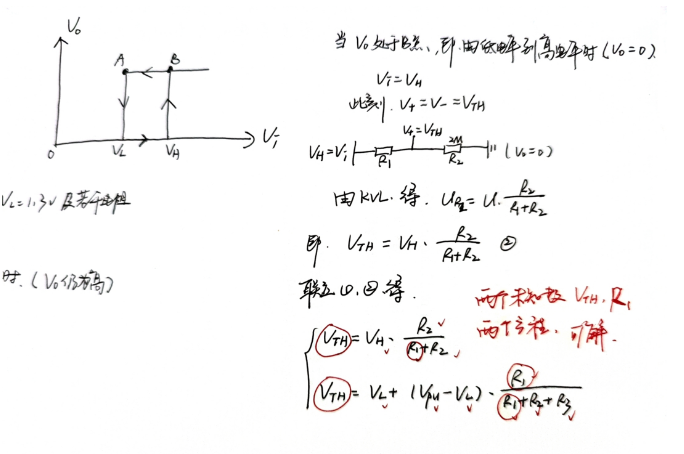 V₀
A
B
0
V_L
V_H
V_i
V_L=1.3V及若干电阻
时.(V₀仍为高)
当V₀处于B点、即由低电平到高电平时(V₀=0).
V_i=V_H
此刻. V₊=V₋=V_TH
V₊=V_TH
V_H=V_i
R₁
2M
R₂
(V₀=0)
由KVL.得. U_{R2}=U·R₂/(R₁+R₂)
即. V_TH=V_H·R₂/(R₁+R₂) ②
联立①、②得.
V_TH=V_H·R₂/(R₁+R₂)
V_TH=V_L+(V_pu-V_L)·R₁/(R₁+R₂+R₃)
两个未知数 V_TH、R₁
两个方程.可解.